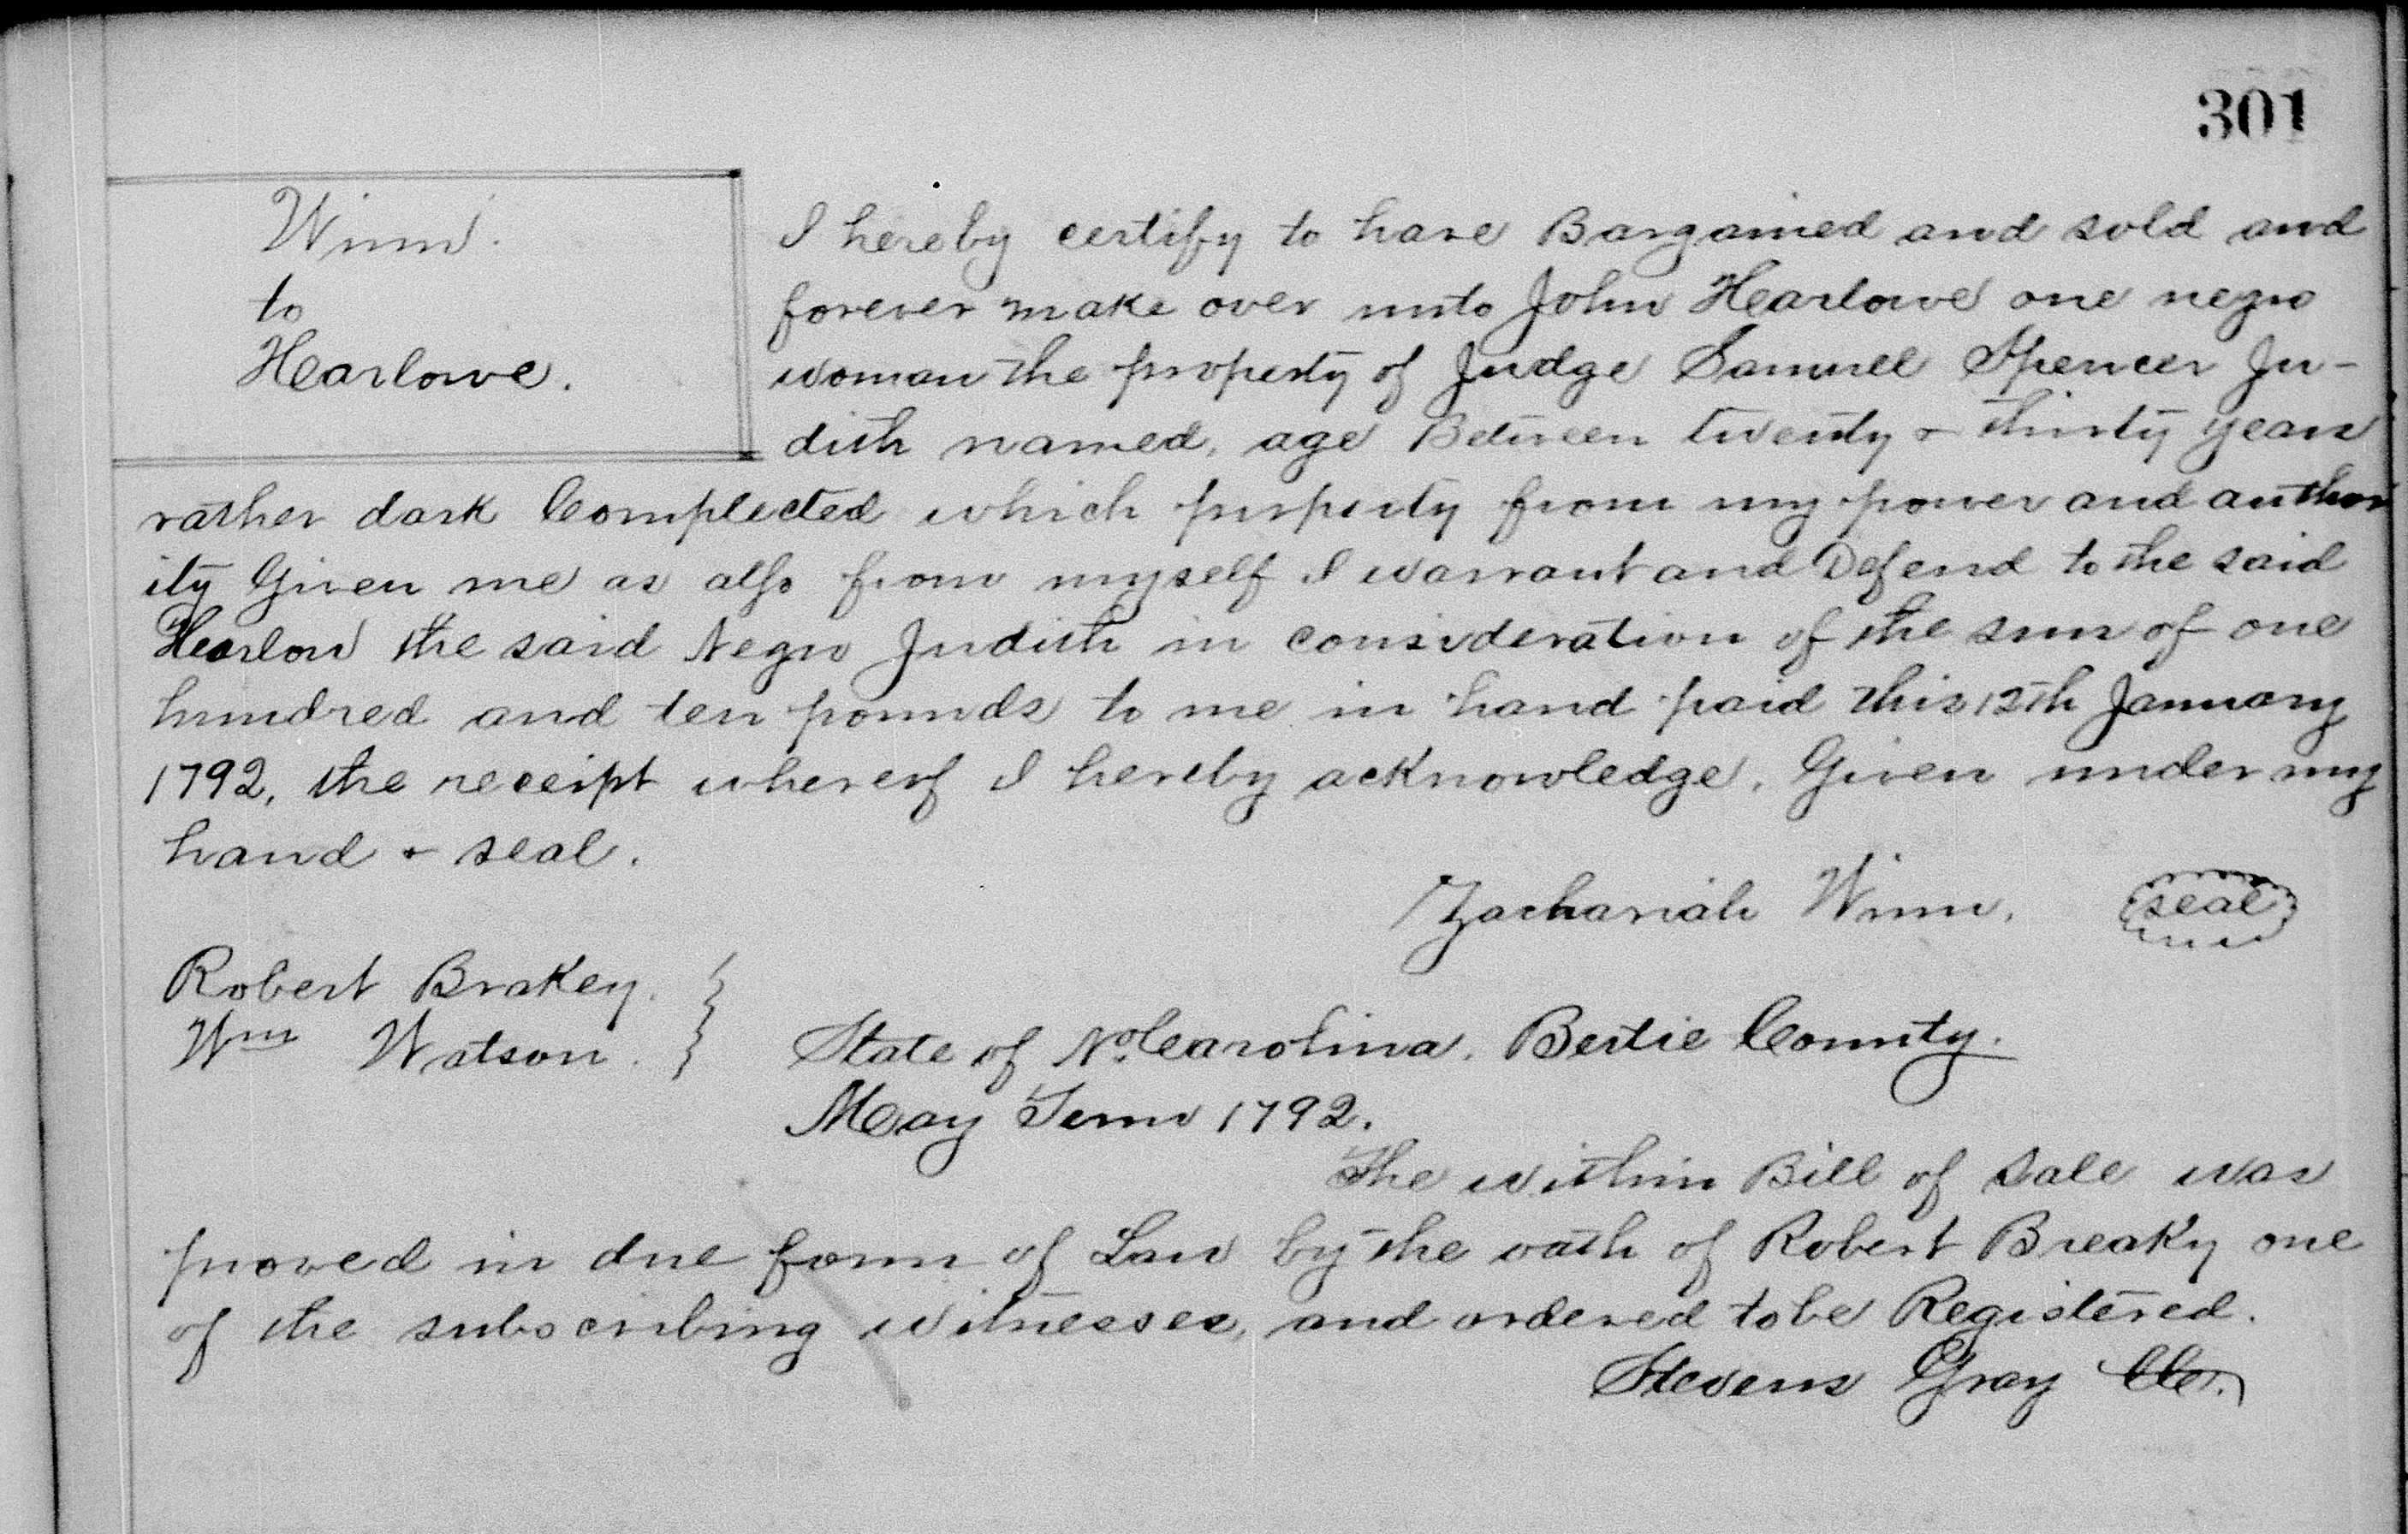 301
Winn.
to
Hearlowe.
I hereby certify to have Bargained and sold and
forever make over unto John Hearlowe one negro
woman the property of Judge Samuel Spencer Ju-
dith named, age Between twenty & thirty years
rather dark Complected which property from my power and author
ity Given me as also from myself I warrant and Defend to the said
Hearlow the said Negro Judith in consideration of the sum of one
hundred and ten pounds to me in hand paid this 12th January
1792, the receipt whereof I hereby acknowledge. Given under my
hand & seal.
Zachariah Winn. seal
Robert Brakey.
Wm Watson.
State of No. Carolina. Bertie County.
May Term 1792.
The within Bill of Sale was
proved in due form of Law by the oath of Robert Breaky one
of the subscribing witnesses, and ordered to be Registered.
Stevens Gray Clr.